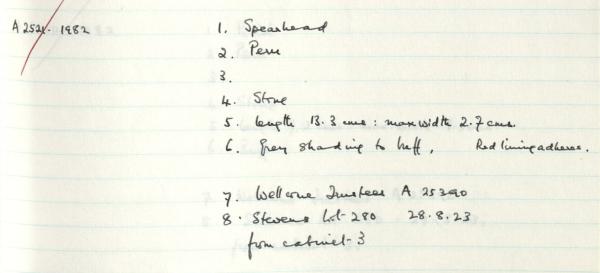 A 2521. 1982 1. Spearhead
2. Peru
3.
4. Stone
5. length 13.3 cms : max width 2.7 cms.
6. Grey shading to buff, Red lining adheres.
7. Wellcome Trustees A 25390
8. Stevens Lot 280 28.8.23
from cabinet 3